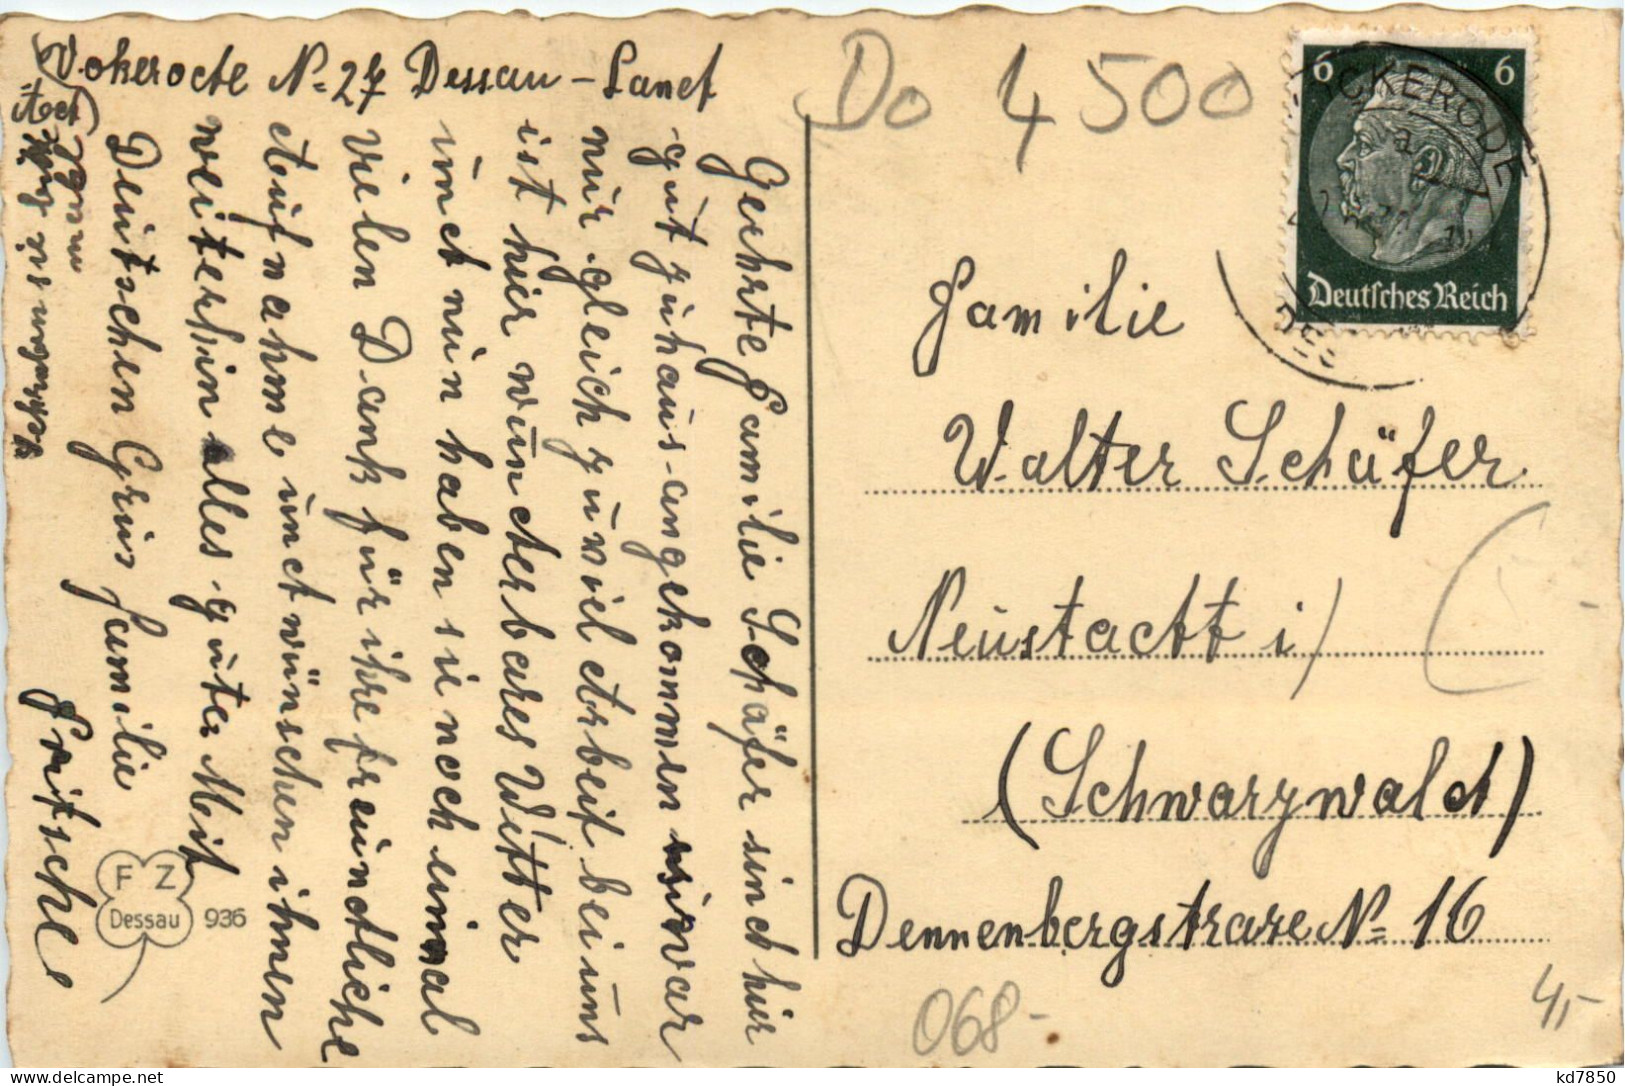 Vokerode N= 27 Dessau - Land
Geehrte Familie Schäfer sind hier
gut zuhaus-angekommen war
mir gleich zuviel Arbeit bei uns
ist hier wunderbares Witter
und nun haben sie noch einmal
vielen Dank für ihre freundliche
Aufnahme und wünschen ihnen
weiterhin alles guter Mit
Deutschen Grus Familie
Fritsche
Do 4500
6 6
Deutsches Reich
Familie
Walter Schäfer
Neustadt i/
(Schwarzwald)
Dennenbergstrase N= 16
F Z
Dessau 936
068-
4,-
kd7850